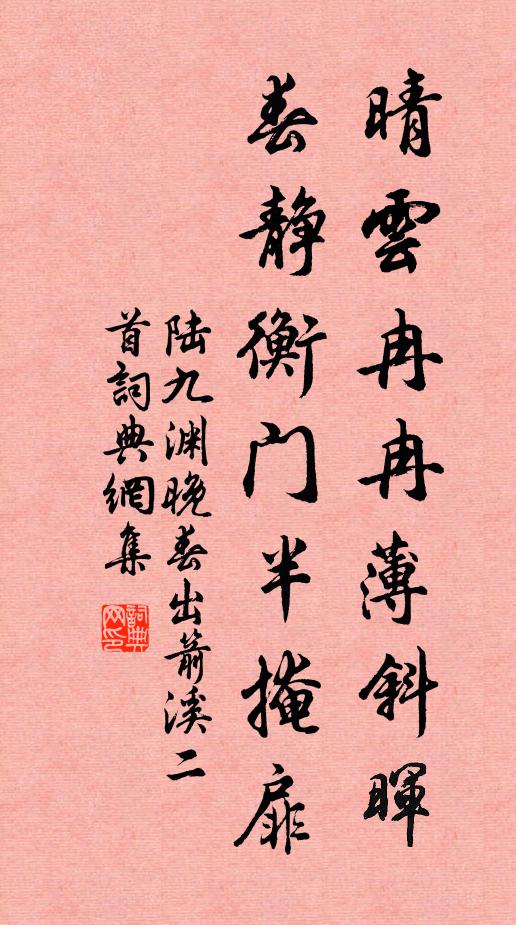 晴雲冉冉薄斜暉
春静衡门半掩扉
陆九渊晚春出箭溪二
首詞典網集
詞典网印